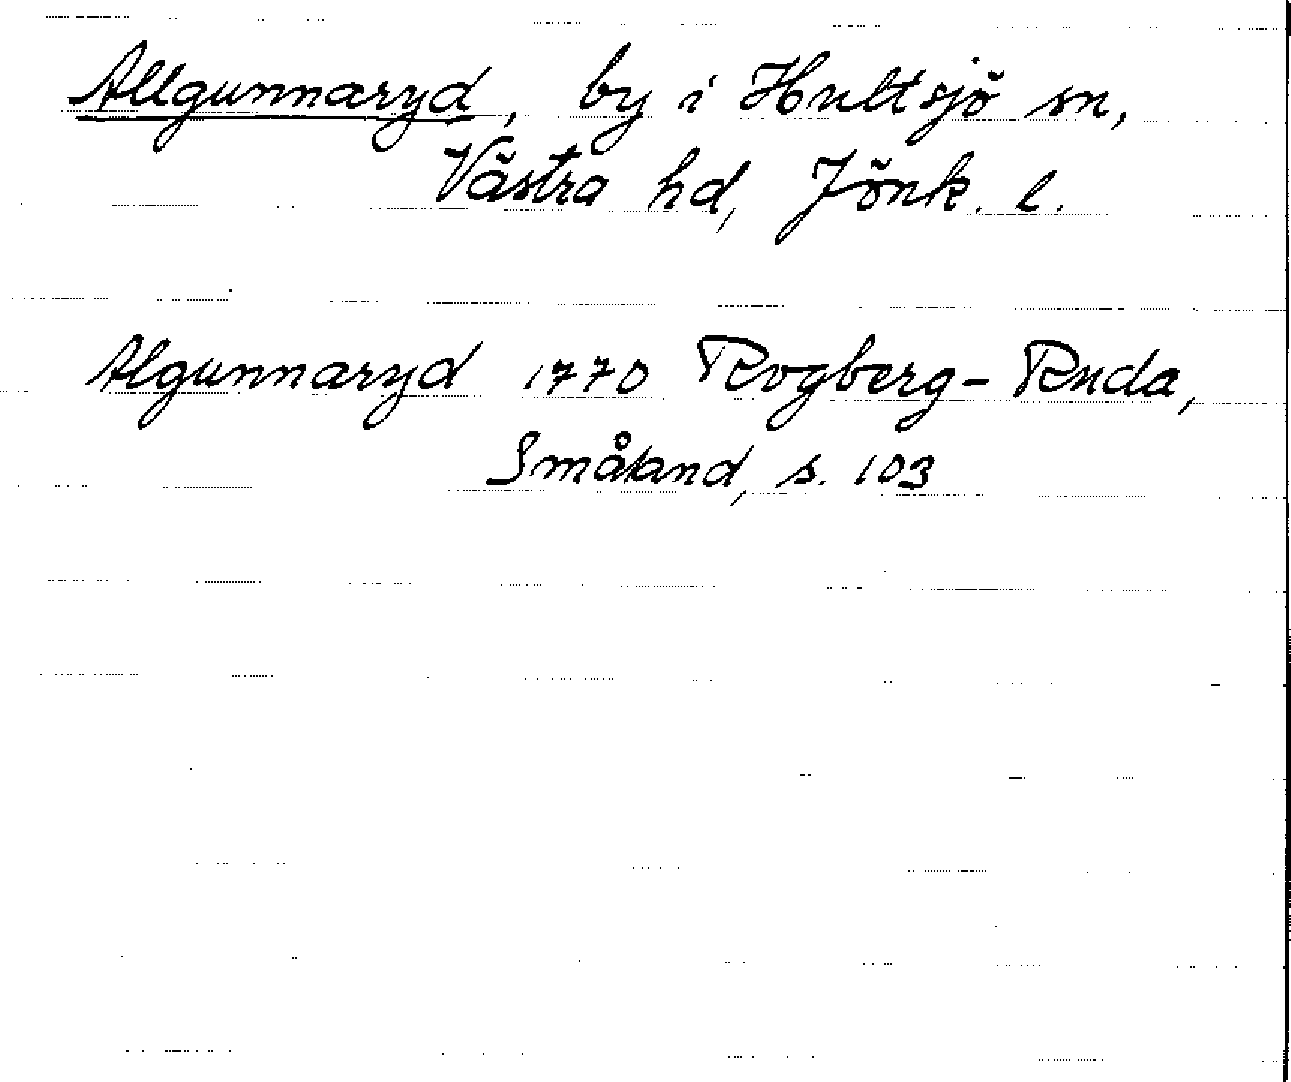 Allgunnaryd, by i Hultsjö sn,
Västra hd, Jönk. l.
Algunnaryd 1770 Rogberg-Ruda,
Småland, s. 103